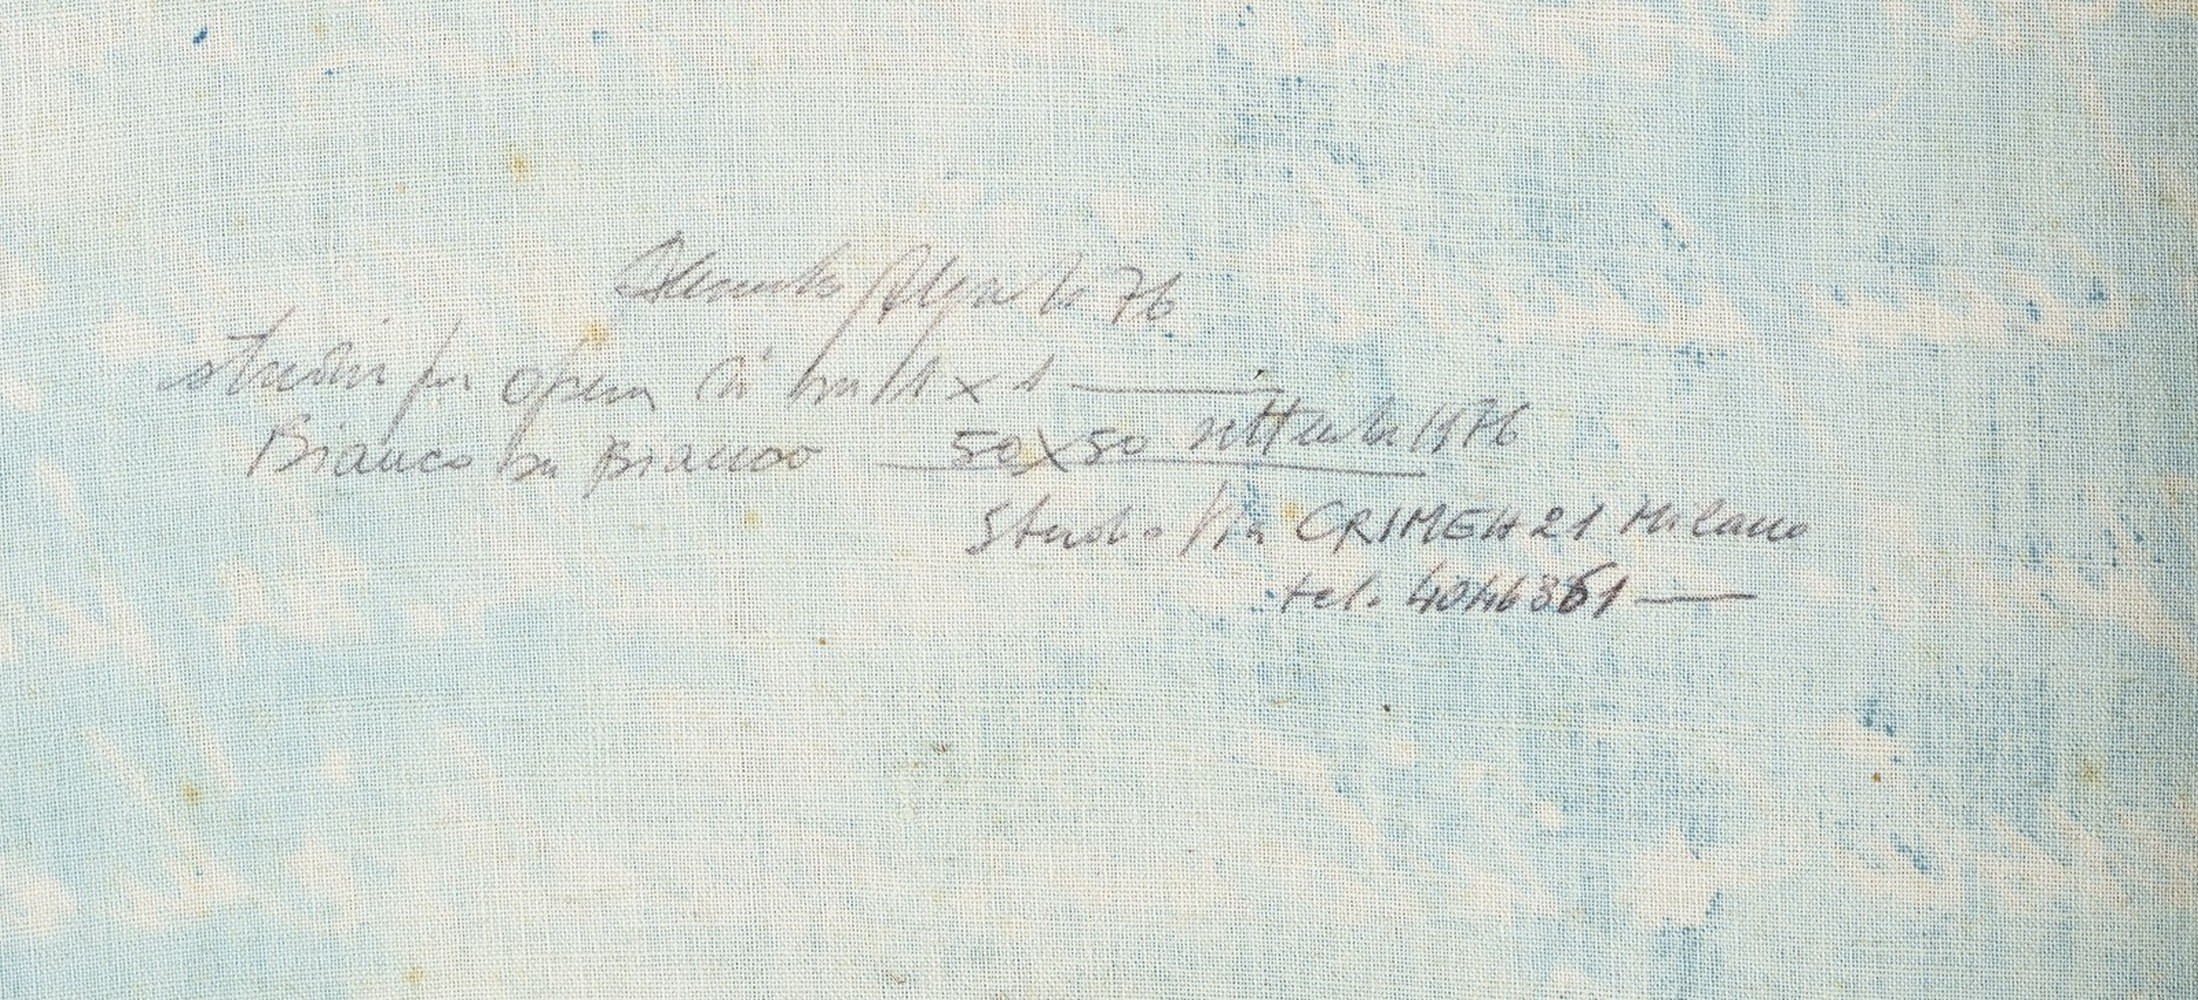 76
studio per opera di m 1 x 1
Bianco su Bianco 50x50 settembre 1976
Studio Via CRIMEA 21 Milano
tel. 4046361